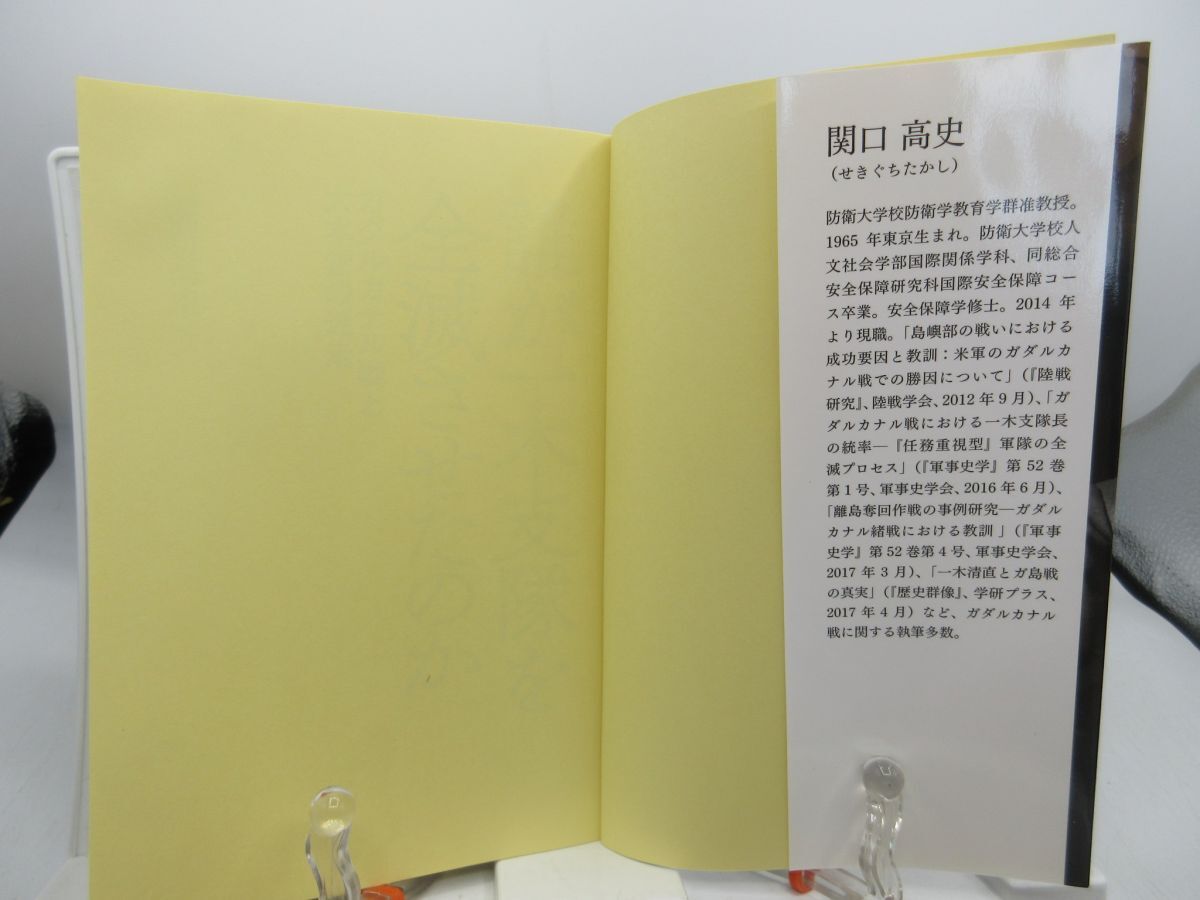 関口 高史
（せきぐちたかし）
防衛大学校防衛学教育学群准教授。
1965 年東京生まれ。防衛大学校人
文社会学部国際関係学科、同総合
安全保障研究科国際安全保障コー
ス卒業。安全保障学修士。2014 年
より現職。「島嶼部の戦いにおける
成功要因と教訓：米軍のガダルカ
ナル戦での勝因について」（『陸戦
研究』、陸戦学会、2012 年 9 月）、「ガ
ダルカナル戦における一木支隊長
の統率―『任務重視型』軍隊の全
滅プロセス」（『軍事史学』第 52 巻
第 1 号、軍事史学会、2016 年 6 月）、
「離島奪回作戦の事例研究―ガダル
カナル緒戦における教訓 」（『軍事
史学』第 52 巻第 4 号、軍事史学会、
2017 年 3 月）、「一木清直とガ島戦
の真実」（『歴史群像』、学研プラス、
2017 年 4 月）など、ガダルカナル
戦に関する執筆多数。